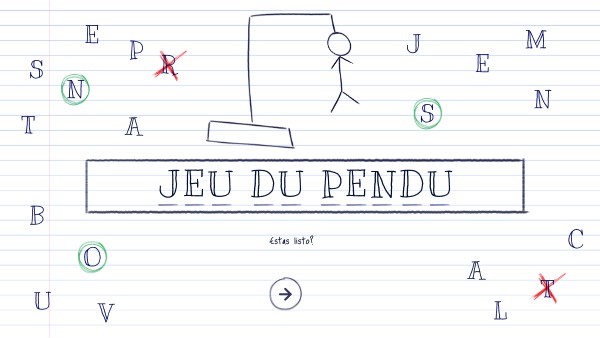 E
P
R
S
N
T
A
J
M
E
N
S
JEU DU PENDU
Estas listo?
B
O
U
V
C
A
T
L